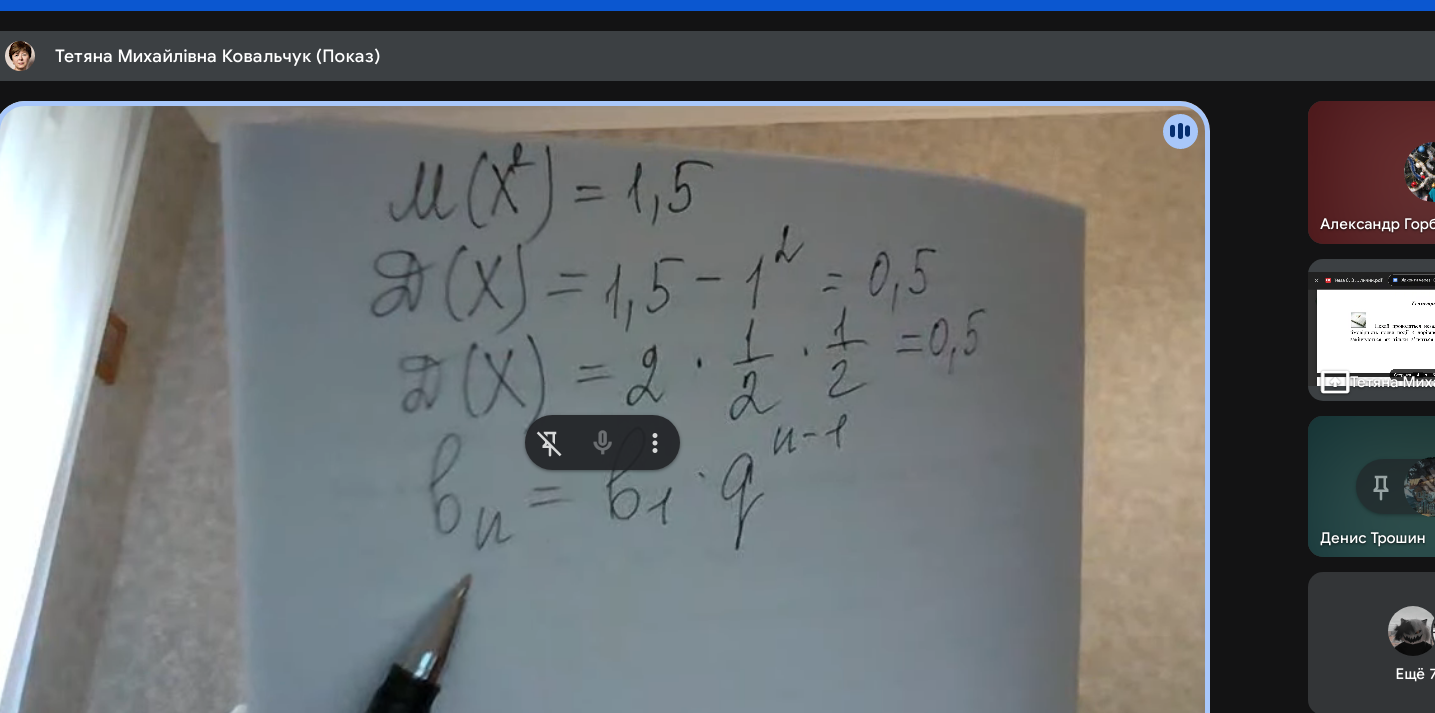 Тетяна Михайлівна Ковальчук (Показ)
М(X²) = 1,5
D(X) = 1,5 - 1² = 0,5
D(X) = 2 · 1/2 · 1/2 = 0,5
bₙ = b₁ · qⁿ⁻¹
Александр Горб
Тетяна Миха
Денис Трошин
Ещё 7